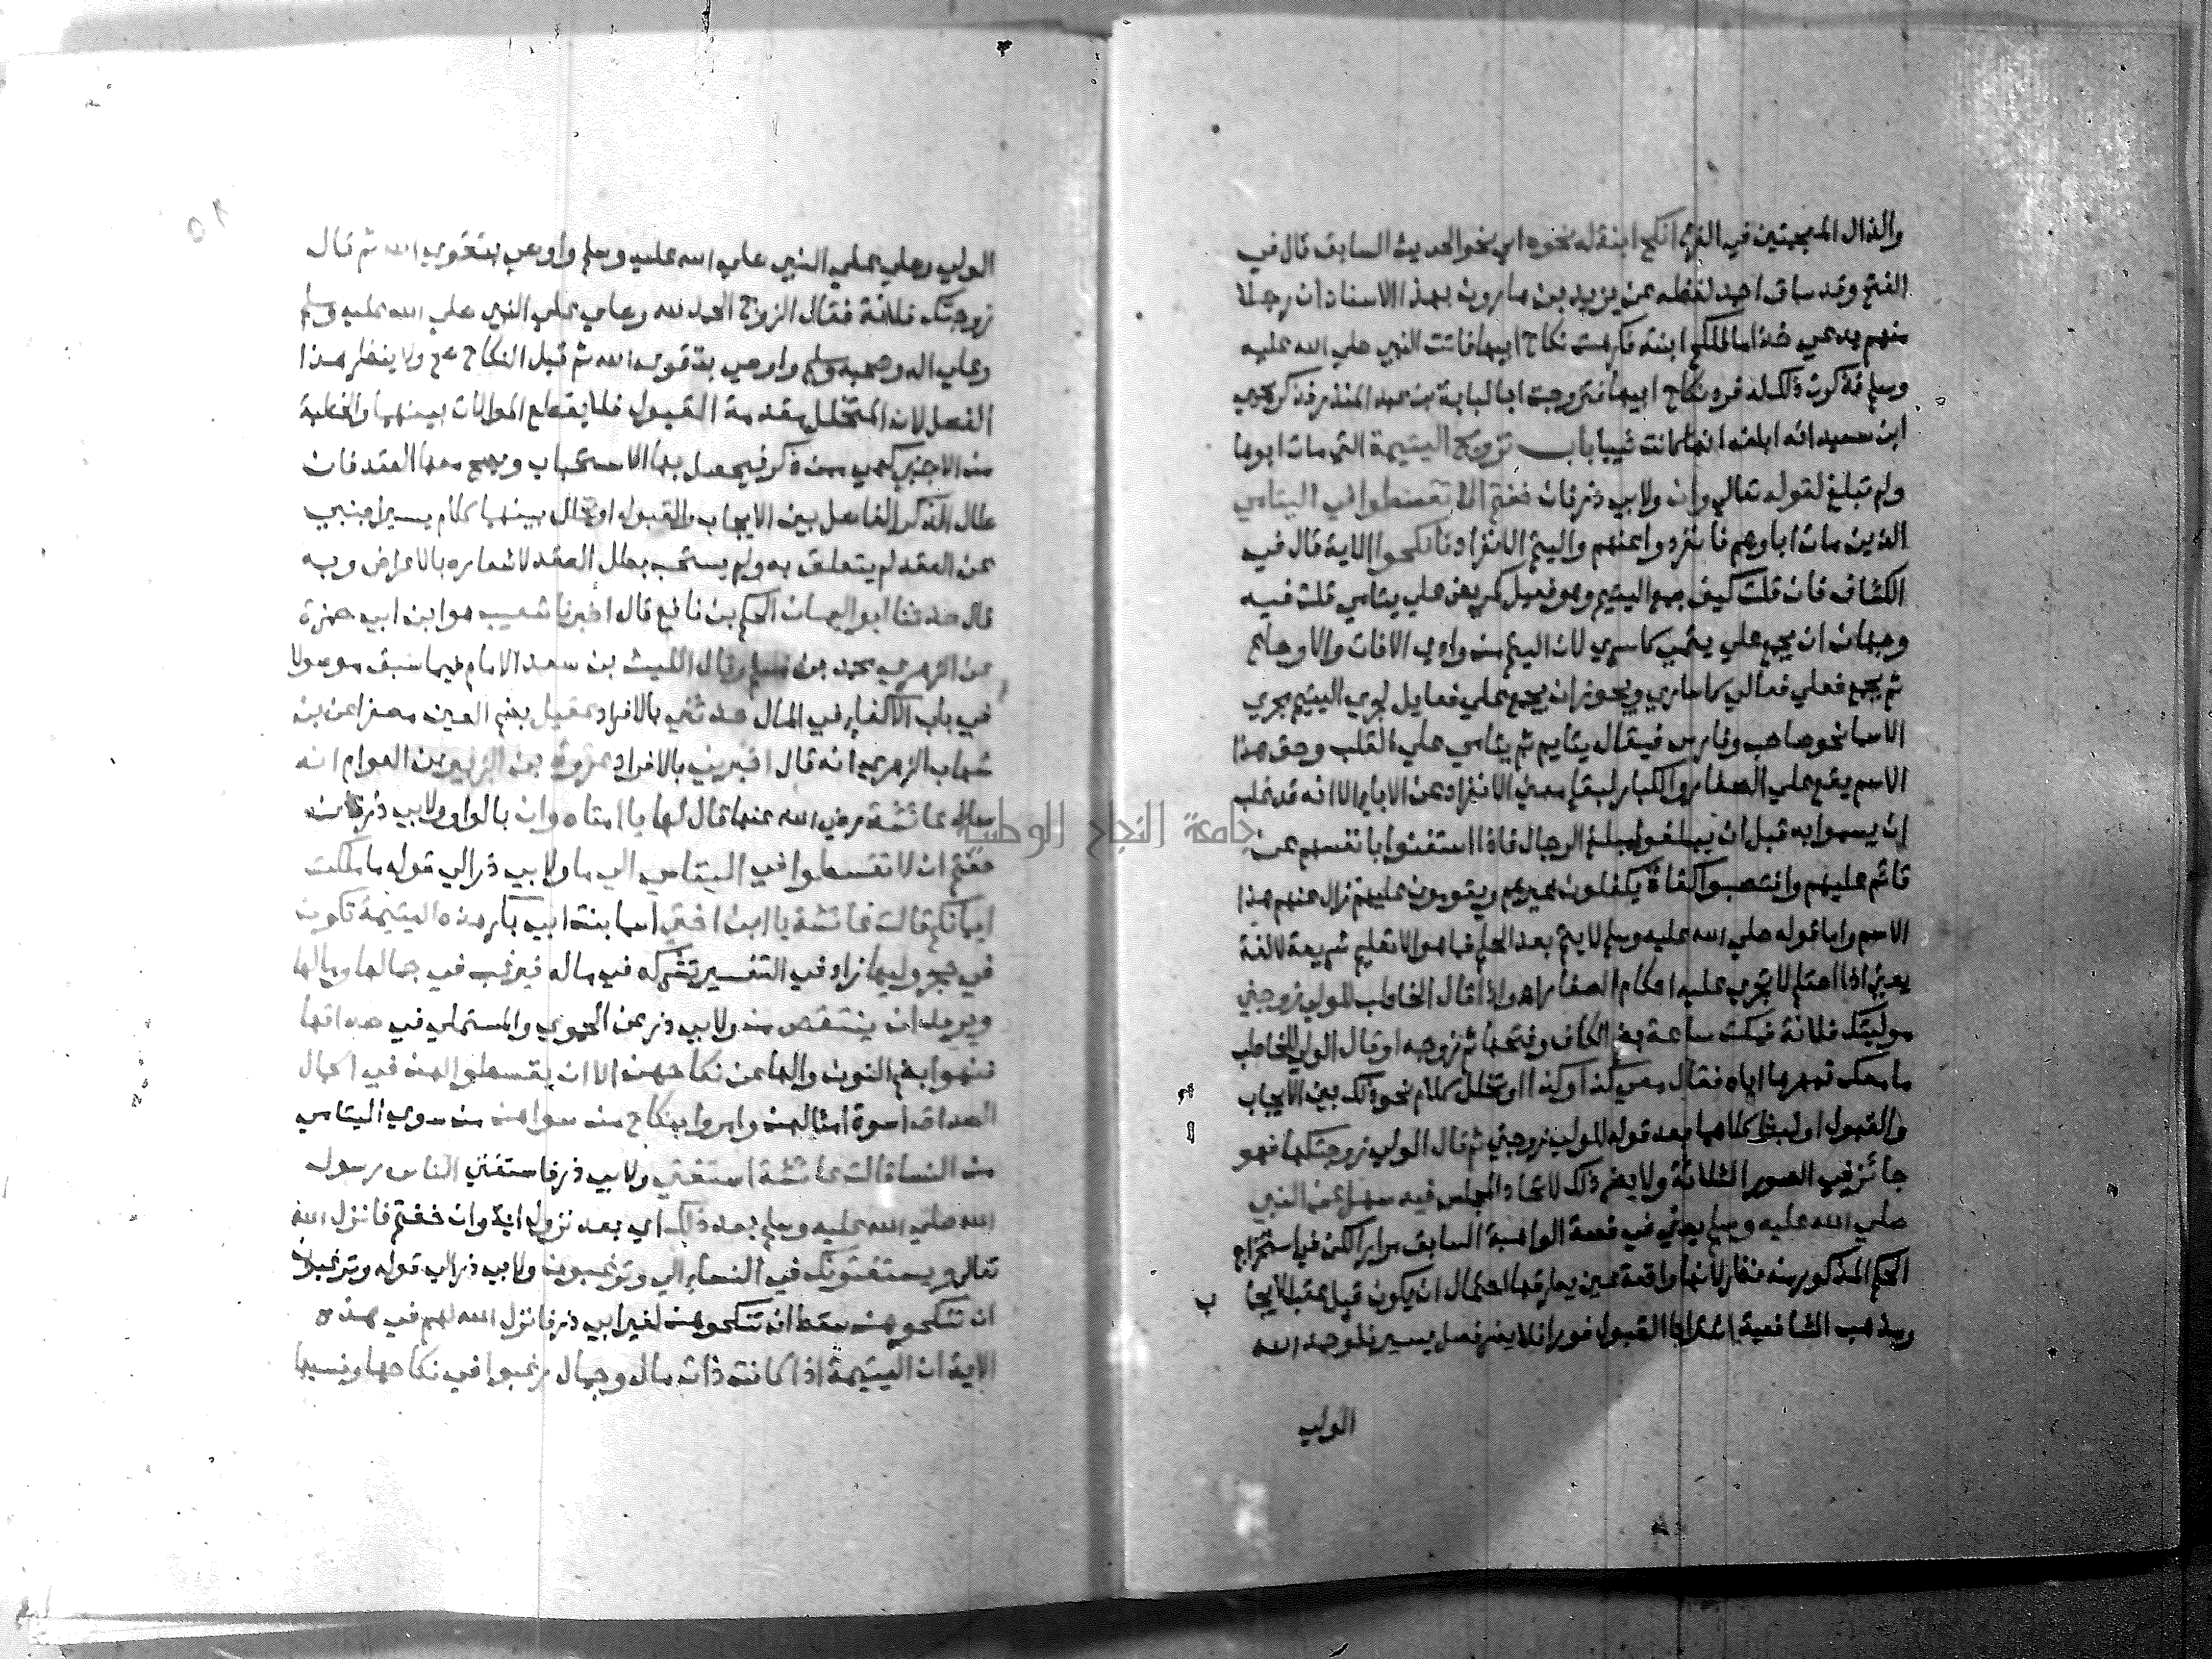 والذال المعجمتين في الفرع انكح ابنة له نحوه اي نحو الحديث السابق قال في
الفتح وقد ساق احمد لفظه عن يزيد بن هارون بهذا الاسناد ان رجلا
منهم يدعي خذاما انكح ابنة فكرهت نكاح ابيها فاتت النبي صلي الله عليه
وسلم فذكرت ذلك له فرد نكاح ابيها فتزوجت ابا لبابة بن عبد المنذر فذكر يحيي
ابن سعيد انه ابلغه انها كانت ثيبا باب تزويج اليتيمة التي مات ابوها
ولم تبلغ لقوله تعالي وان ولابي ذر فان خفتم الا تقسطوا في اليتامي
الذين مات اباوهم فانفردوا عنهم واليتم الانفراد فانكحوا الاية قال في
الكشاف فان قلت كيف جمع اليتيم وهو فعيل كمريض علي يتامي قلت فيه
وجهان ان يجمع علي يتمي كاسري لان اليتم من وادي الافات والاوجاع
ثم يجمع فعلي فعالي كاساري ويجوز ان يجمع علي فعايل لجري اليتيم مجري
الاسما نحو صاحب وفارس فيقال يتايم ثم يتامي علي القلب وحق هذا
الاسم يقع علي الصغار والكبار لبقا معني الانفراد عن الابا الا انه قد غلب
ان يسموا به قبل ان يبلغوا مبلغ الرجال فاذا استغنوا بانفسهم عن
قائم عليهم وانتصبوا كفاة يكفلون غيرهم ويقومون عليهم زال عنهم هذا
الاسم واما قوله صلي الله عليه وسلم لا يتم بعد الحلم فما هو الا تعليم شريعة لا لغة
يعني اذا احتلم لا تجري عليه احكام الصغار اه واذا قال الخاطب للولي زوجني
موليتك فلانة فمكث ساعة بضم الكاف وفتحها ثم زوجه او قال الولي للخاطب
ما معك تمهرها اياه فقال معي كذا وكذا او تخلل كلام نحو ذلك بين الايجاب
والقبول او لبثا كلاهما بعد قوله للولي زوجني ثم قال الولي زوجتكها فهو
جائز في الصور الثلاثة ولا يضر ذلك لاتحاد المجلس فيه سهل عن النبي
صلي الله عليه وسلم يعني في قصة الواهبة السابق مرارا لكن في استخراج
الحكم المذكور منه نظر لانها واقعة عين يطرقها احتمال ان يكون قبل عقب الايجا ب
ومذهب الشافعية اشتراط القبول فورا فلا يضر فصل يسير فلو حمد الله
الولي
الولي وصلي علي النبي صلي الله عليه وسلم واوصي بتقوي الله ثم قال
زوجتك فلانة فقال الزوج الحمد لله وصلي علي النبي صلي الله عليه وسلم
وعلي اله وصحبه وسلم واوصي بتقوي الله ثم قبل النكاح صح ولا يضر هذا
الفصل لان المتخلل مقدمة القبول فلا يقطع الموالاة بينهما والخطبة
من الاجنبي كهي ممن ذكر فيحصل بها الاستحباب ويصح معها العقد فان
طال الذكر الفاصل بين الايجاب والقبول او تخلل بينهما كلام يسير اجنبي
عن العقد لم يتعلق به ولم يستحب بطل العقد لاشعاره بالاعراض وبه
قال حدثنا ابو اليمان الحكم بن نافع قال اخبرنا شعيب هو ابن ابي حمزة
عن الزهري محمد بن مسلم وقال الليث بن سعد الامام فيما سبق موصولا
في باب الاكفا في المال حدثني بالافراد عقيل بضم العين مصغرا عن بن
شهاب الزهري انه قال اخبرني بالافراد عروة بن الزبير بن العوام انه
سال عائشة رضي الله عنها قال لها يا امتاه وان بالواو ولابي ذر فان
خفتم ان لا تقسطوا في اليتامي الي ما ولابي ذر الي قوله ما ملكت
ايمانكم قالت عائشة يا ابن اختي اسما بنت ابي بكر هذه اليتيمة تكون
في حجر وليها زاد في التفسير تشركه في ماله فيرغب في جمالها ومالها
ويريد ان ينتقص من ولابي ذر عن الحموي والمستملي في صداقها
فنهوا بضم النون والها عن نكاحهن الا ان يقسطوا لهن في اكمال
الصداق اسوة امثالهن وامروا بنكاح من سواهن من سوي اليتامي
من النسا قالت عائشة استفتي ولابي ذر فاستفتي الناس رسول
الله صلي الله عليه وسلم بعد ذلك اي بعد نزول اية وان خفتم فانزل الله
تعالي ويستفتونك في النسا الي وترغبون ولابي ذر الي قوله وترغبون
ان تنكحوهن سقط ان تنكحوهن لغير ابي ذر فانزل الله لهم في هذه
الاية ان اليتيمة اذا كانت ذات مال وجمال رغبوا في نكاحها ونسبها
جامعة النجاح الوطنية